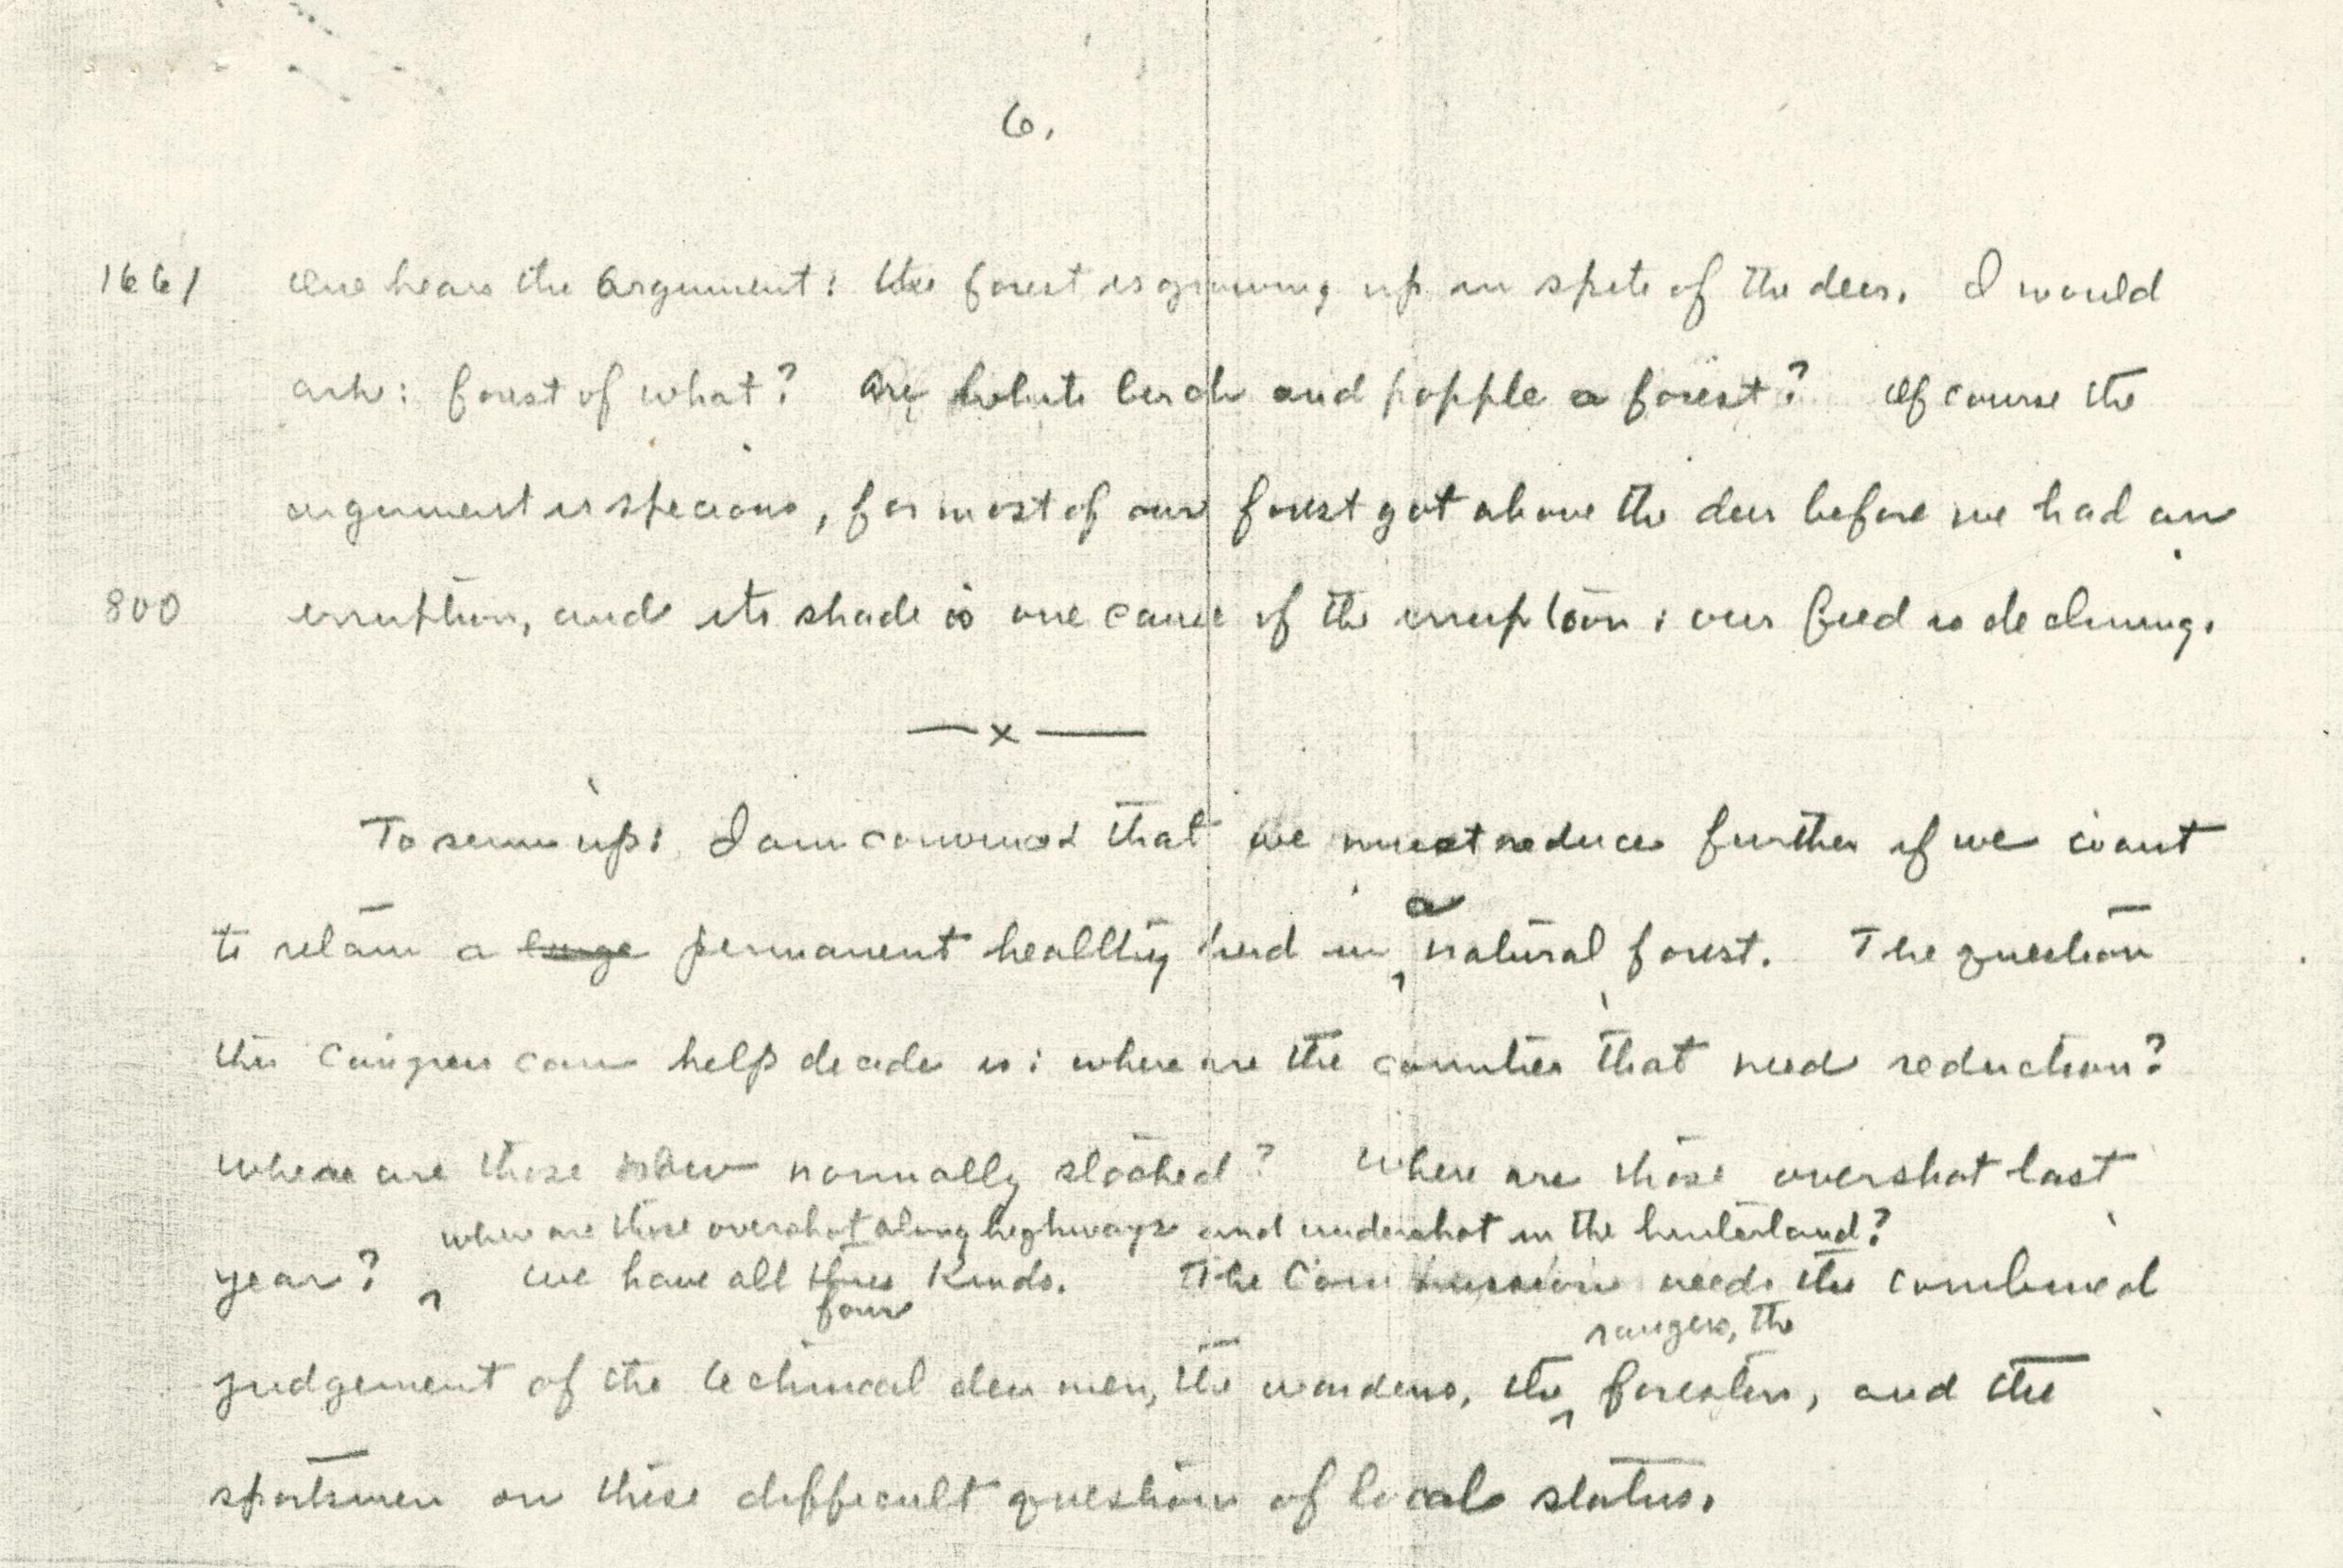 6.
1661 One hears the argument: the forest is growing up in spite of the deer. I would
ask: forest of what? Are white birch and popple a forest? Of course the
argument is specious, for most of our forest got above the deer before we had an
800 irruption, and its shade is one cause of the irruption: our feed is declining.
—x—
To sum up: I am convinced that we must reduce further if we want
to retain a large permanent healthy herd in a natural forest. The question
this Congress can help decide is: where are the counties that need reduction?
Where are those now normally stocked? Where are those overshot last
where are those overshot along highways and undershot in the hinterland?
year? We have all three kinds. The Commission needs the combined
four
rangers, the
judgement of the technical deer men, the wardens, the foresters, and the
sportsmen on these difficult question of local status.